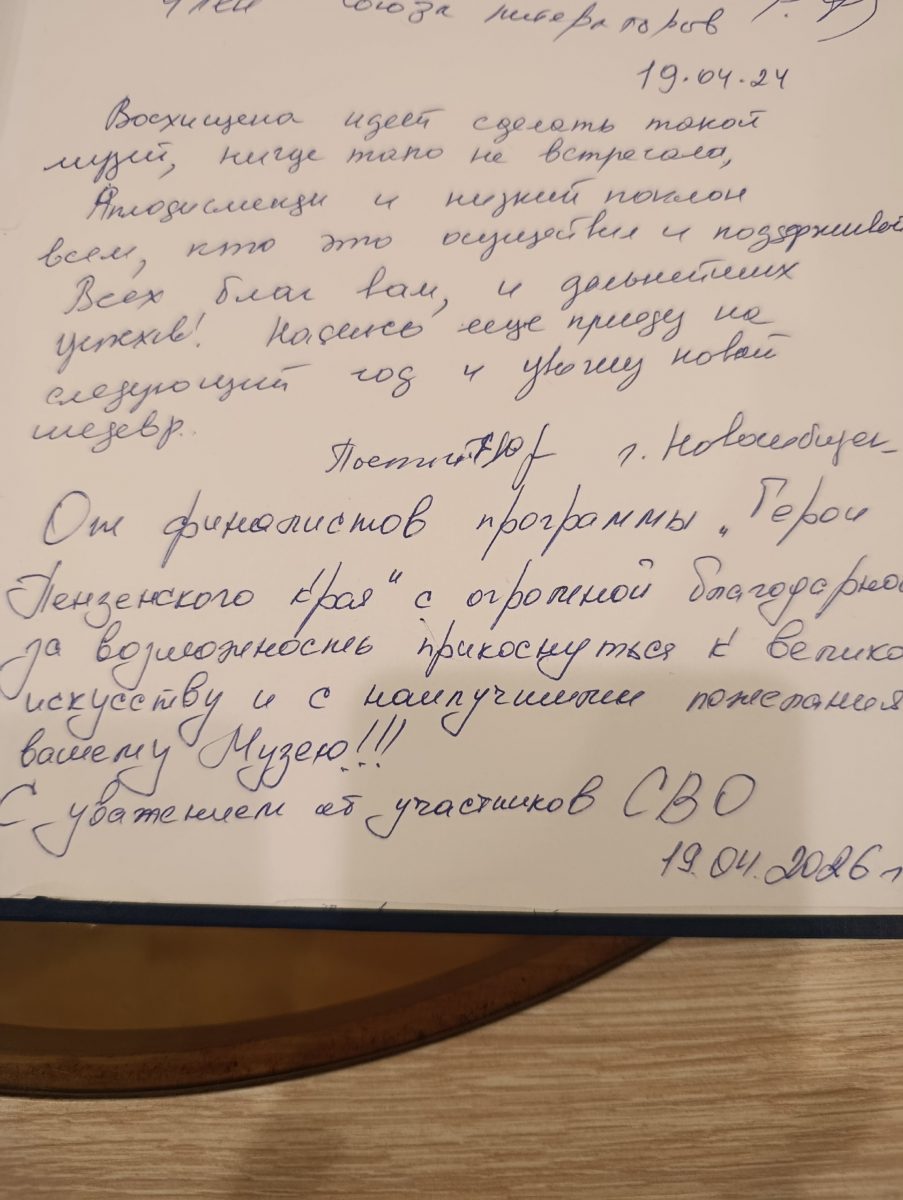 член Союза литераторов Р.Ф)
19.04.24
Восхищена идеей сделать такой
музей, нигде тапо не встречала,
Аплодисменди и низкий поклон
всем, кто это осуществил и поддерживае
Всех благ вам, и дальнейших
успхв! Надеюсь еще приеду на
следующий год и увижу новый
шедевр.
г. Новосибирск
От финалистов программы „Герои
Пензенского края" с огромной благодарнос
за возможность прикоснуться к велико
искусству и с наилучшими пожелания
вашему Музею!!!
С уважением от участников СВО
19.04.2026 г